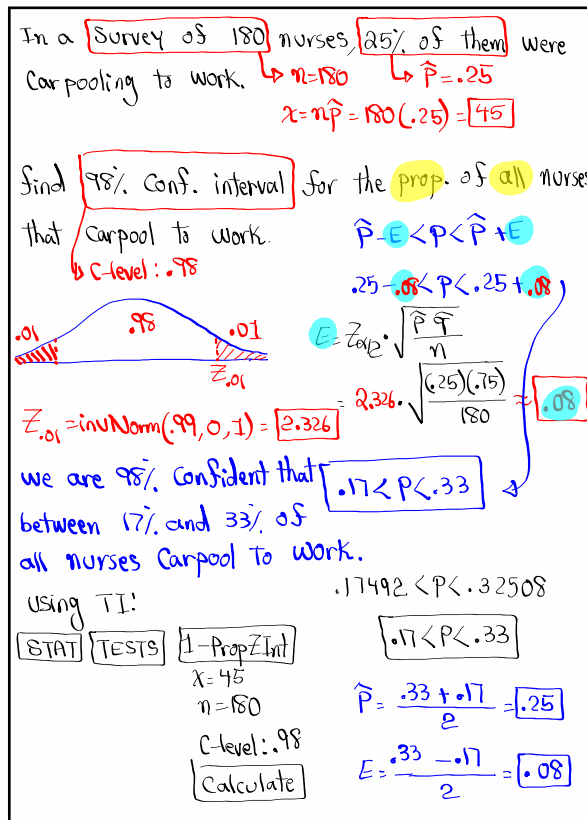 In a Survey of 180 nurses, 25% of them were
Carpooling to work. n=180 P̂=.25
x=np̂=180(.25)=45
find 98% Conf. interval for the prop. of all nurses
that Carpool to work. P̂-E<P<P̂+E
C-level: .98
.25-.08<P<.25+.08
.01 .98 .01
Z.01
E=Zα/2·√(P̂q̂/n)
=2.326·√((.25)(.75)/180)≈.08
Z.01=invNorm(.99,0,1)=2.326
we are 98% Confident that .17<P<.33
between 17% and 33% of
all nurses Carpool to work.
.17492<P<.32508
using TI:
STAT TESTS 1-PropZInt .17<P<.33
x=45
n=180 P̂=(.33+.17)/2=.25
C-level: .98
Calculate E=(.33-.17)/2=.08